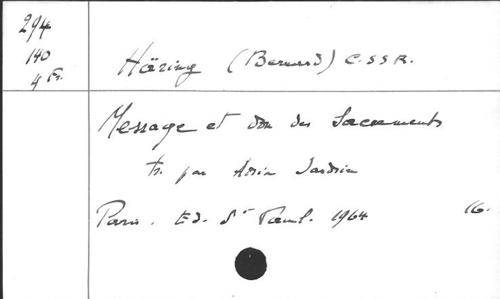 294
140
4 Fr.
Häring (Bernard) C.SS.R.
Message et don des Sacrements
tr. par Jardin
Paris. Ed. St Paul. 1964 16.